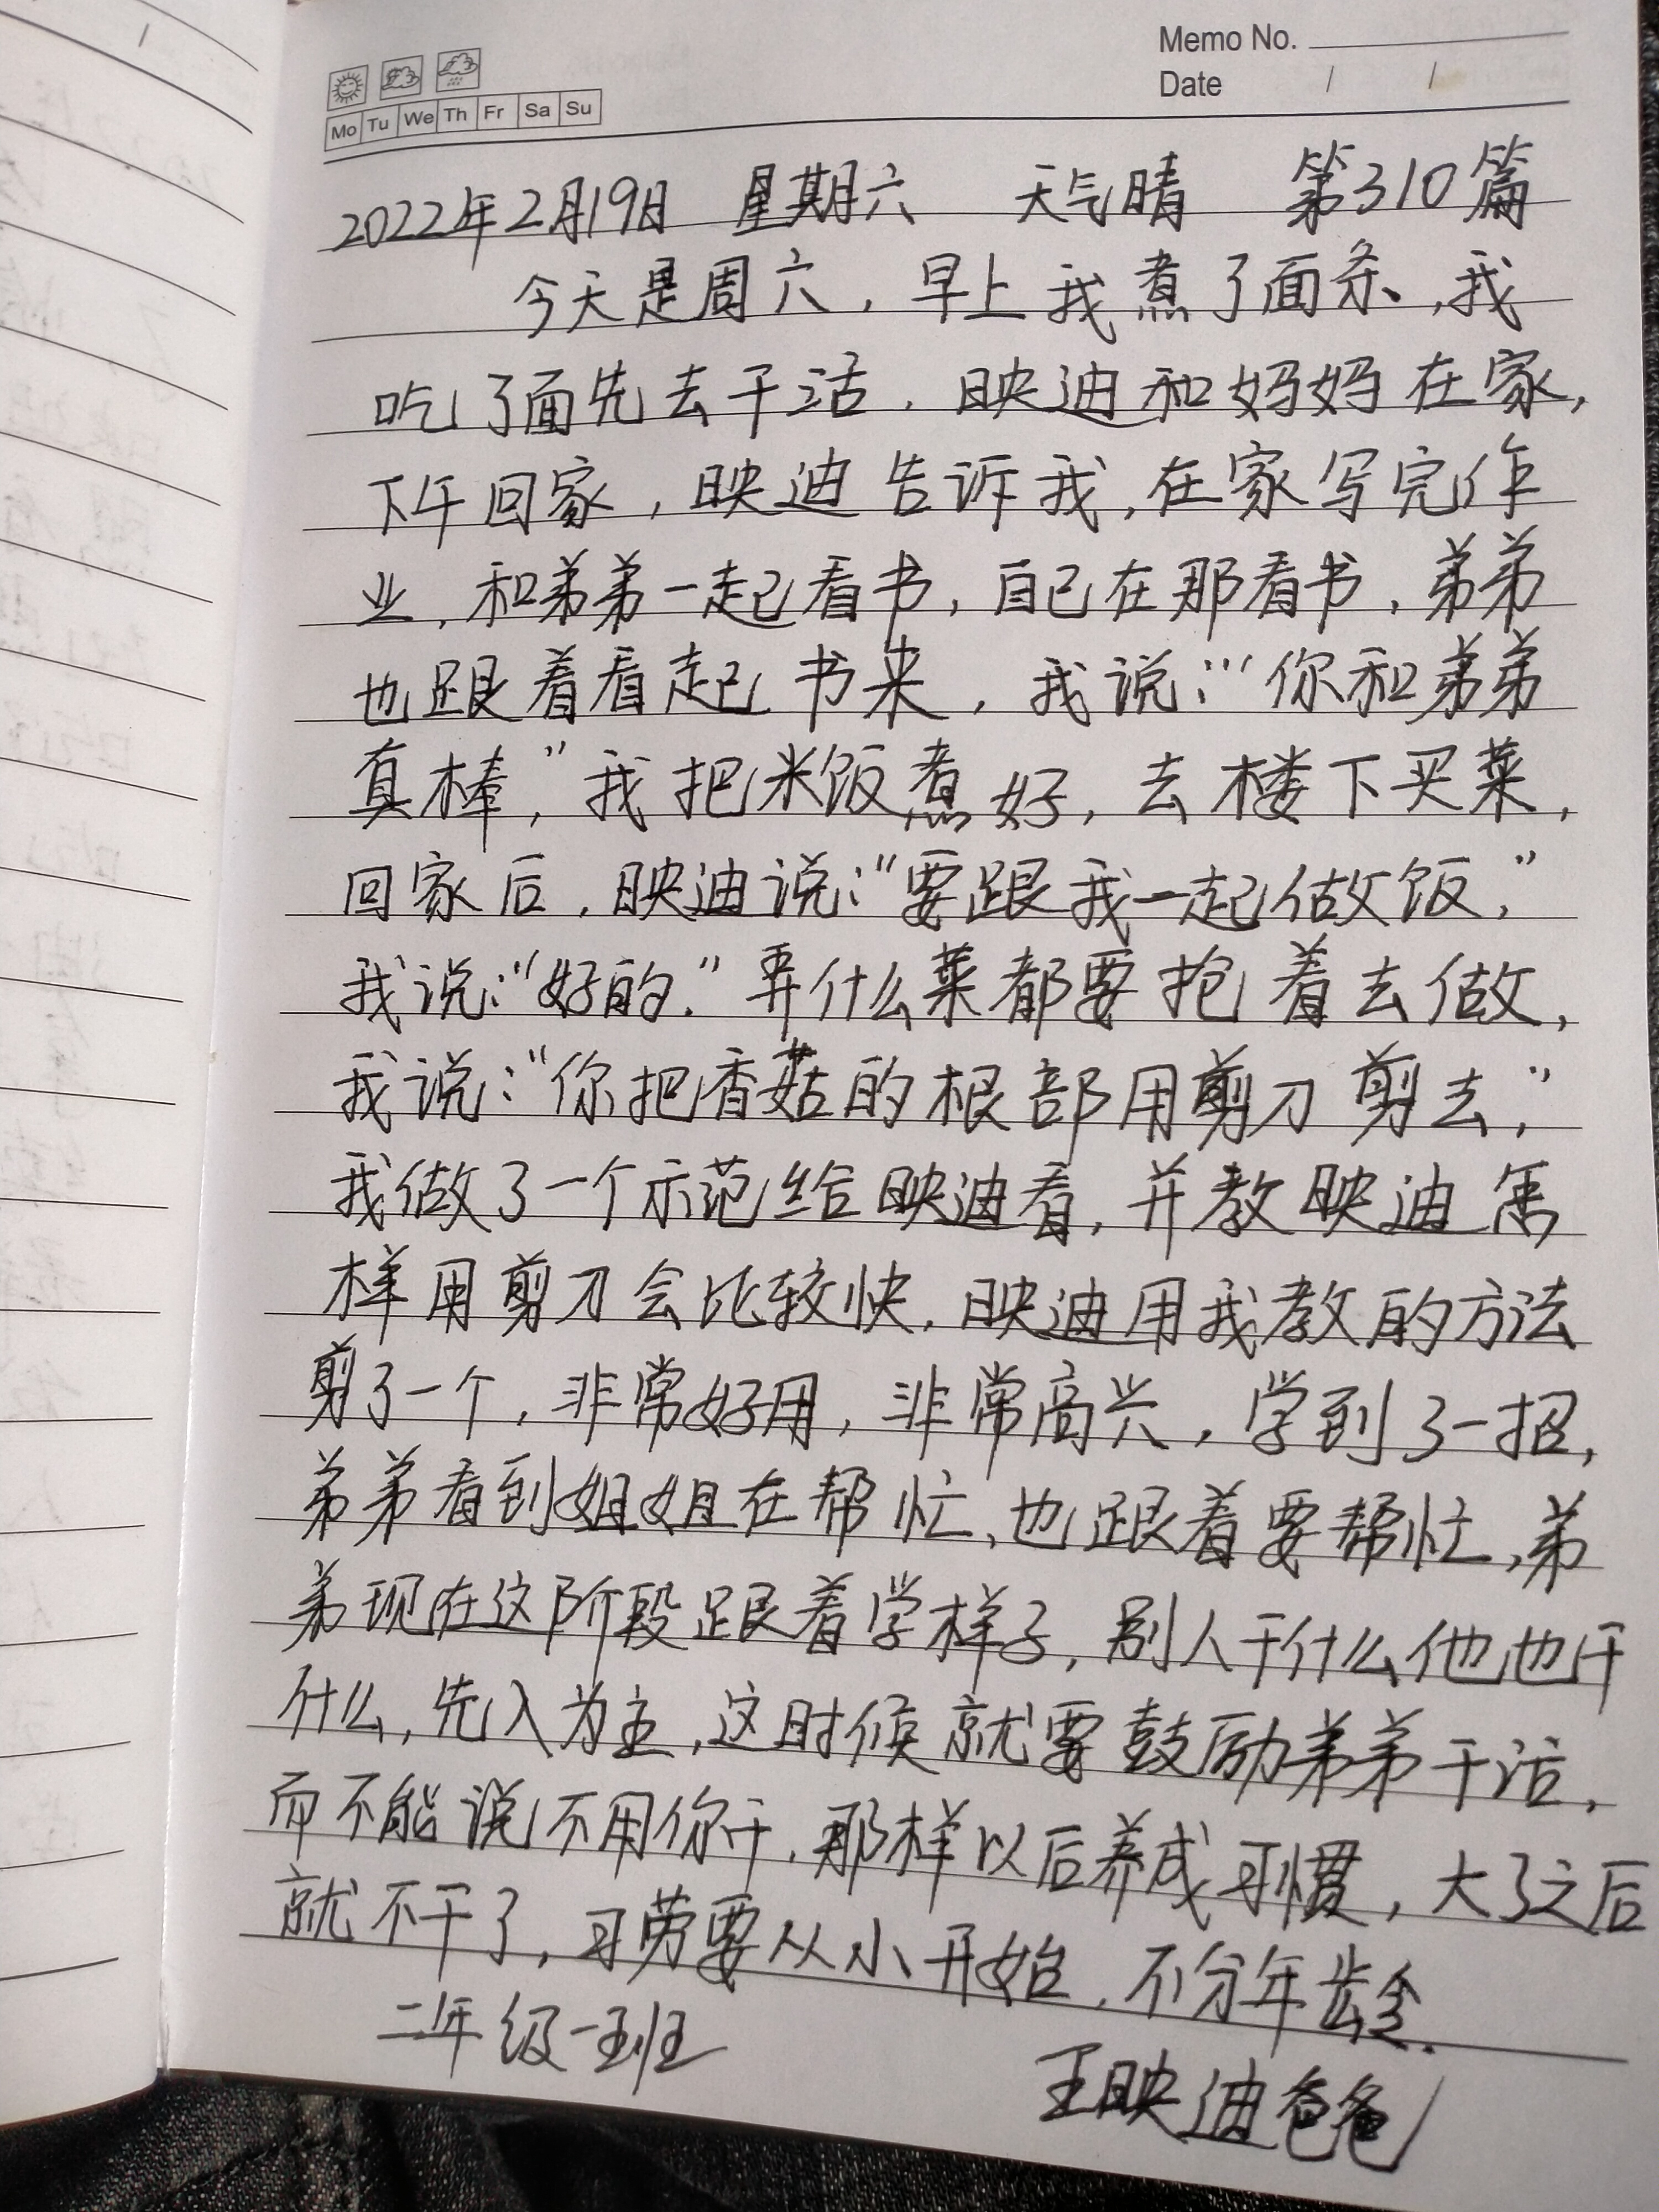 Memo No.
Date / /
Mo Tu We Th Fr Sa Su
2022年2月19日 星期六 天气晴 第310篇
今天是周六，早上我煮了面条，我
吃了面先去干活，映迪和妈妈在家，
下午回家，映迪告诉我，在家写完作
业，和弟弟一起看书，自己在那看书，弟弟
也跟着看起书来，我说：“你和弟弟
真棒，”我把米饭煮好，去楼下买菜，
回家后，映迪说：“要跟我一起做饭，”
我说：“好的。”弄什么菜都要抢着去做，
我说：“你把香菇的根部用剪刀剪去，”
我做了一个示范给映迪看，并教映迪怎
样用剪刀会比较快，映迪用我教的方法
剪了一个，非常好用，非常高兴，学到了一招，
弟弟看到姐姐在帮忙、也跟着要帮忙，弟
弟现在这阶段跟着学样子，别人干什么他也干
什么，先入为主，这时候就要鼓励弟弟干活，
而不能说不用你干，那样以后养成习惯，大了之后
就不干了，习劳要从小开始，不分年龄.
二年级一班
王映迪爸爸